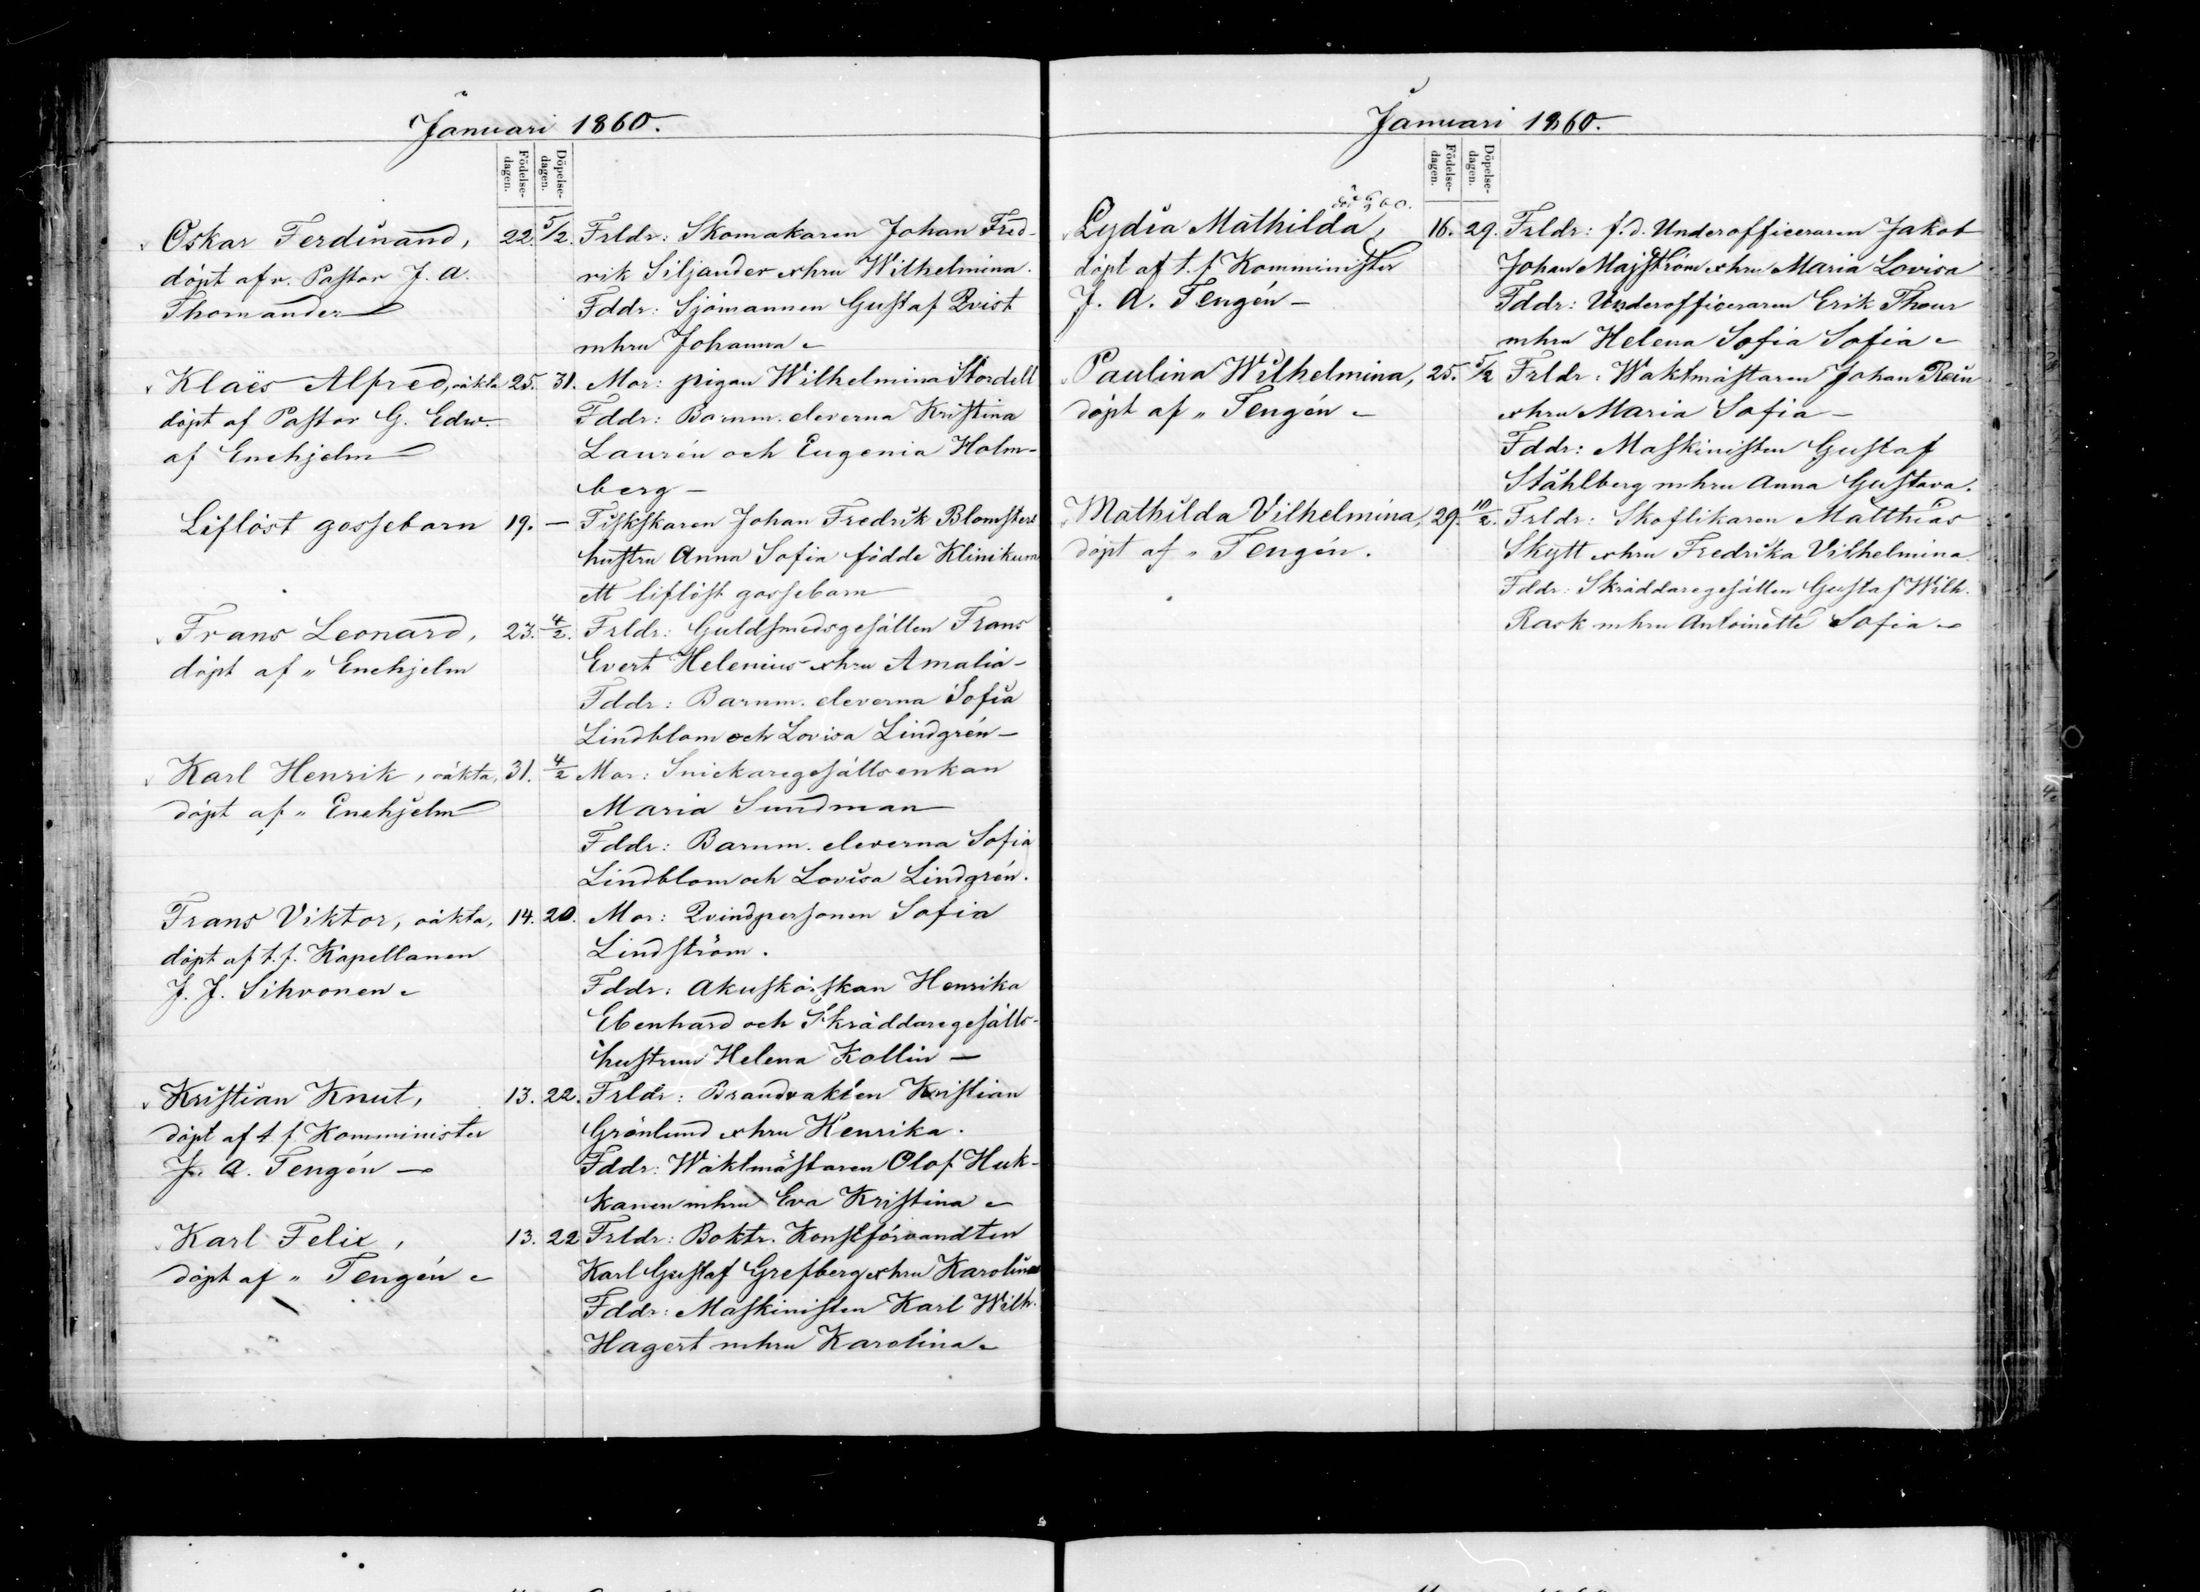 Januari 1860.
Födelse-dagen.
Döpelse-dagen.
Oskar Ferdinand,
döpt af v. Pastor J. A.
Thomander
22. 5/2.
Frldr: Skomakaren Johan Fred-
rik Siljander o hru Wilhelmina.
Fddr: Sjömannen Gustaf Qvist
m hru Johanna
Klaës Alfred, oäkta
döpt af Pastor G. Edw.
af Enehjelm
25. 31.
Mor: pigan Wilhelmina Stordell
Fddr: Barnm. eleverna Kristina
Laurén och Eugenia Holm-
berg –
Liflöst gossebarn
19. –
Fiskkaren Johan Fredrik Blomsters
hustru Anna Sofia födde
ett liflöst gossebarn
Frans Leonard,
döpt af „ Enehjelm
23. 4/2.
Frldr: Guldsmedsgesällen Frans
Evert Helenius o hru Amalia –
Fddr: Barnm. eleverna Sofia
Lindblom och Lovisa Lindgrén –
Karl Henrik, oäkta,
döpt af „ Enehjelm
31. 4/2
Mor: Snickaregesällsenkan
Maria Sundman
Fddr: Barnm. eleverna Sofia
Lindblom och Lovisa Lindgrén.
Frans Viktor, oäkta,
döpt af t. f. Kapellanen
J. J. Sihvonen
14. 20.
Mor: Qvindpersonen Sofia
Lindström.
Fddr: Akuskörskan Henrika
Ebenhard och Skräddaregesälls-
hustrun Helena Kollin –
Kristian Knut,
döpt af t f Komminister
J. A. Tengén –
13. 22.
Frldr: Brandvakten Kristian
Grönlund o hru Henrika.
Fddr: Waktmästaren Olof Huk-
kanen m hru Eva Kristina
Karl Felix,
döpt af „ Tengén
13. 22
Frldr: Boktr. Konstförvandten
Karl Gustaf Grefberg o hru Karolina
Fddr: Maskinisten Karl Wilh.
Hagert m hru Karolina
Januari 1860.
Födelse-dagen.
Döpelse-dagen.
Lydia Mathilda,
döpt af t. f Komminister
J. A. Tengén –
16. 29.
Frldr: f. d. Underofficeraren Jakob
Johan Majström o hru Maria Lovisa
Fddr: Underofficeraren Erik Thour
m hru Helena Sofia Sofia
Paulina Wilhelmina,
döpt af „ Tengén –
25. 5/2
Frldr: Waktmästaren Johan Rein
o hru Maria Sofia –
Fddr: Maskinisten Gustaf
Ståhlberg m hru Anna Gustava.
Mathilda Vilhelmina,
döpt af „ Tengén.
29. 10/2.
Frldr: Skoflikaren Matthias
Skytt o hru Fredrika Vilhelmina.
Fddr: Skräddaregesällen Gustaf Wilh.
Rask m hru Antoinette Sofia